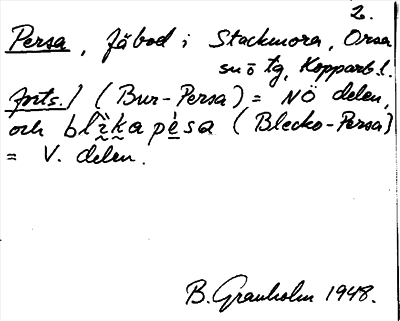 2.
Persa, fäbod i Stackmora, Orsa
sn o tg, Kopparb.l.
forts.] (Bur-Persa) = NÖ delen,
och blikapesa (Blecko-Persa)
= V. delen.
B. Granholm 1948.